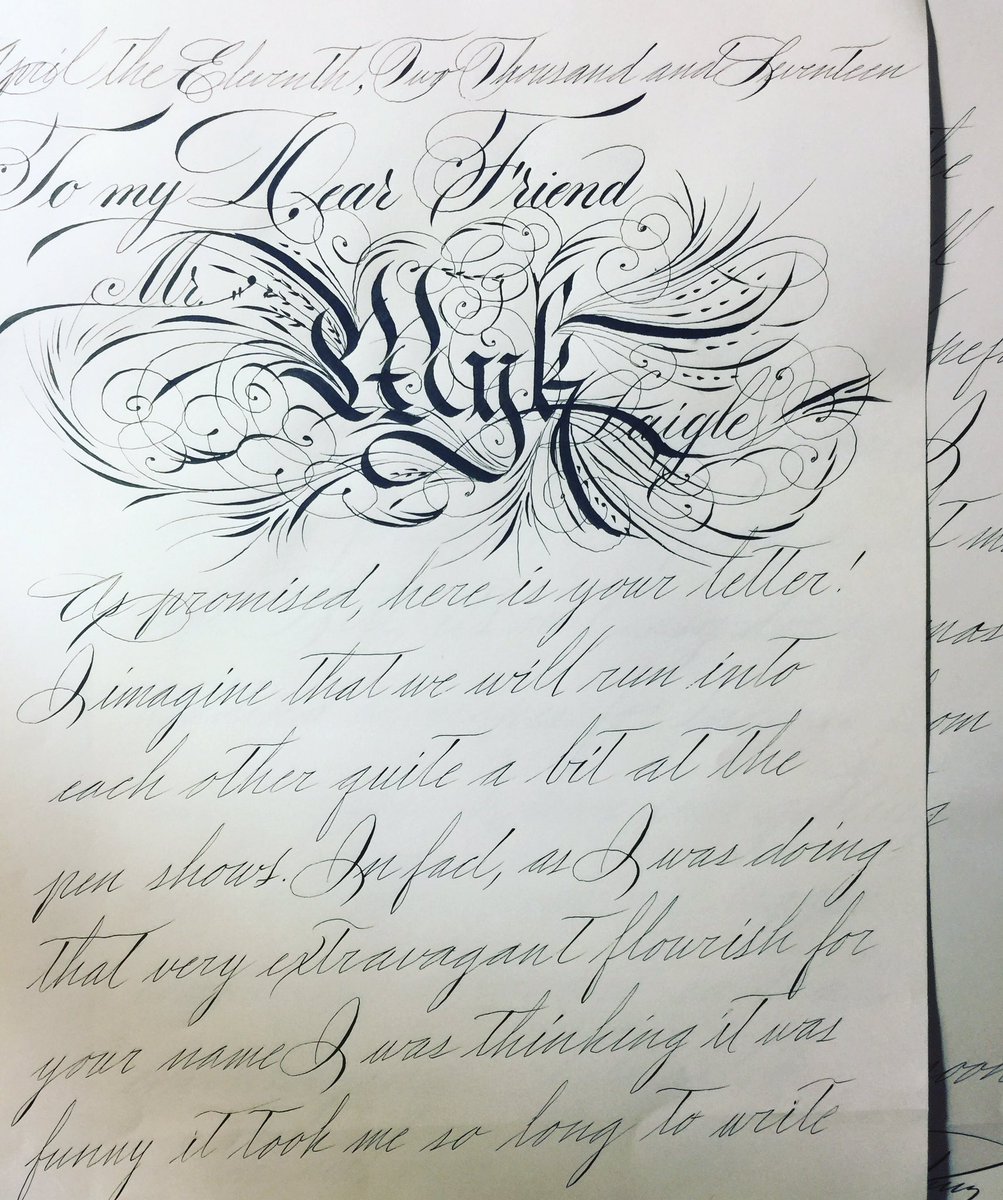 April the Eleventh, Two Thousand and Seventeen
To my Dear Friend
Mr. Wyk Daigle
As promised, here is your letter!
I imagine that we will run into
each other quite a bit at the
pen shows. In fact, as I was doing
that very extravagant flourish for
your name I was thinking it was
funny it took me so long to write